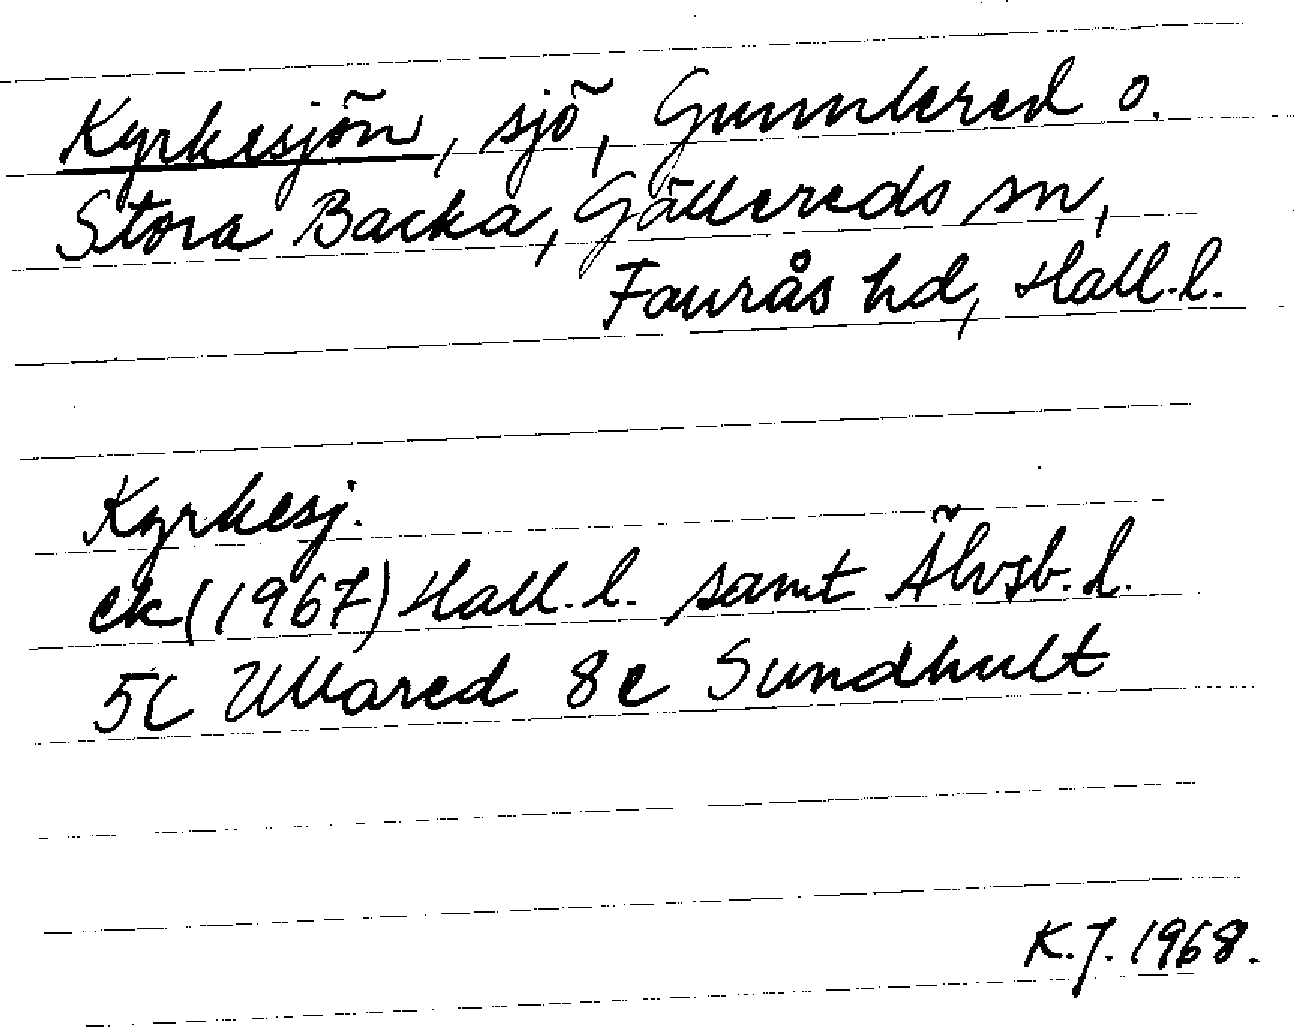 Kyrkesjön, sjö, Gunntered o.
Stora Backa, Gällereds sn,
Faurås hd, Hall.l.
Kyrkesj.
ek (1967) Hall.l. samt Älvsb.l.
5c Ullared 8e Sundhult
K.J. 1968.